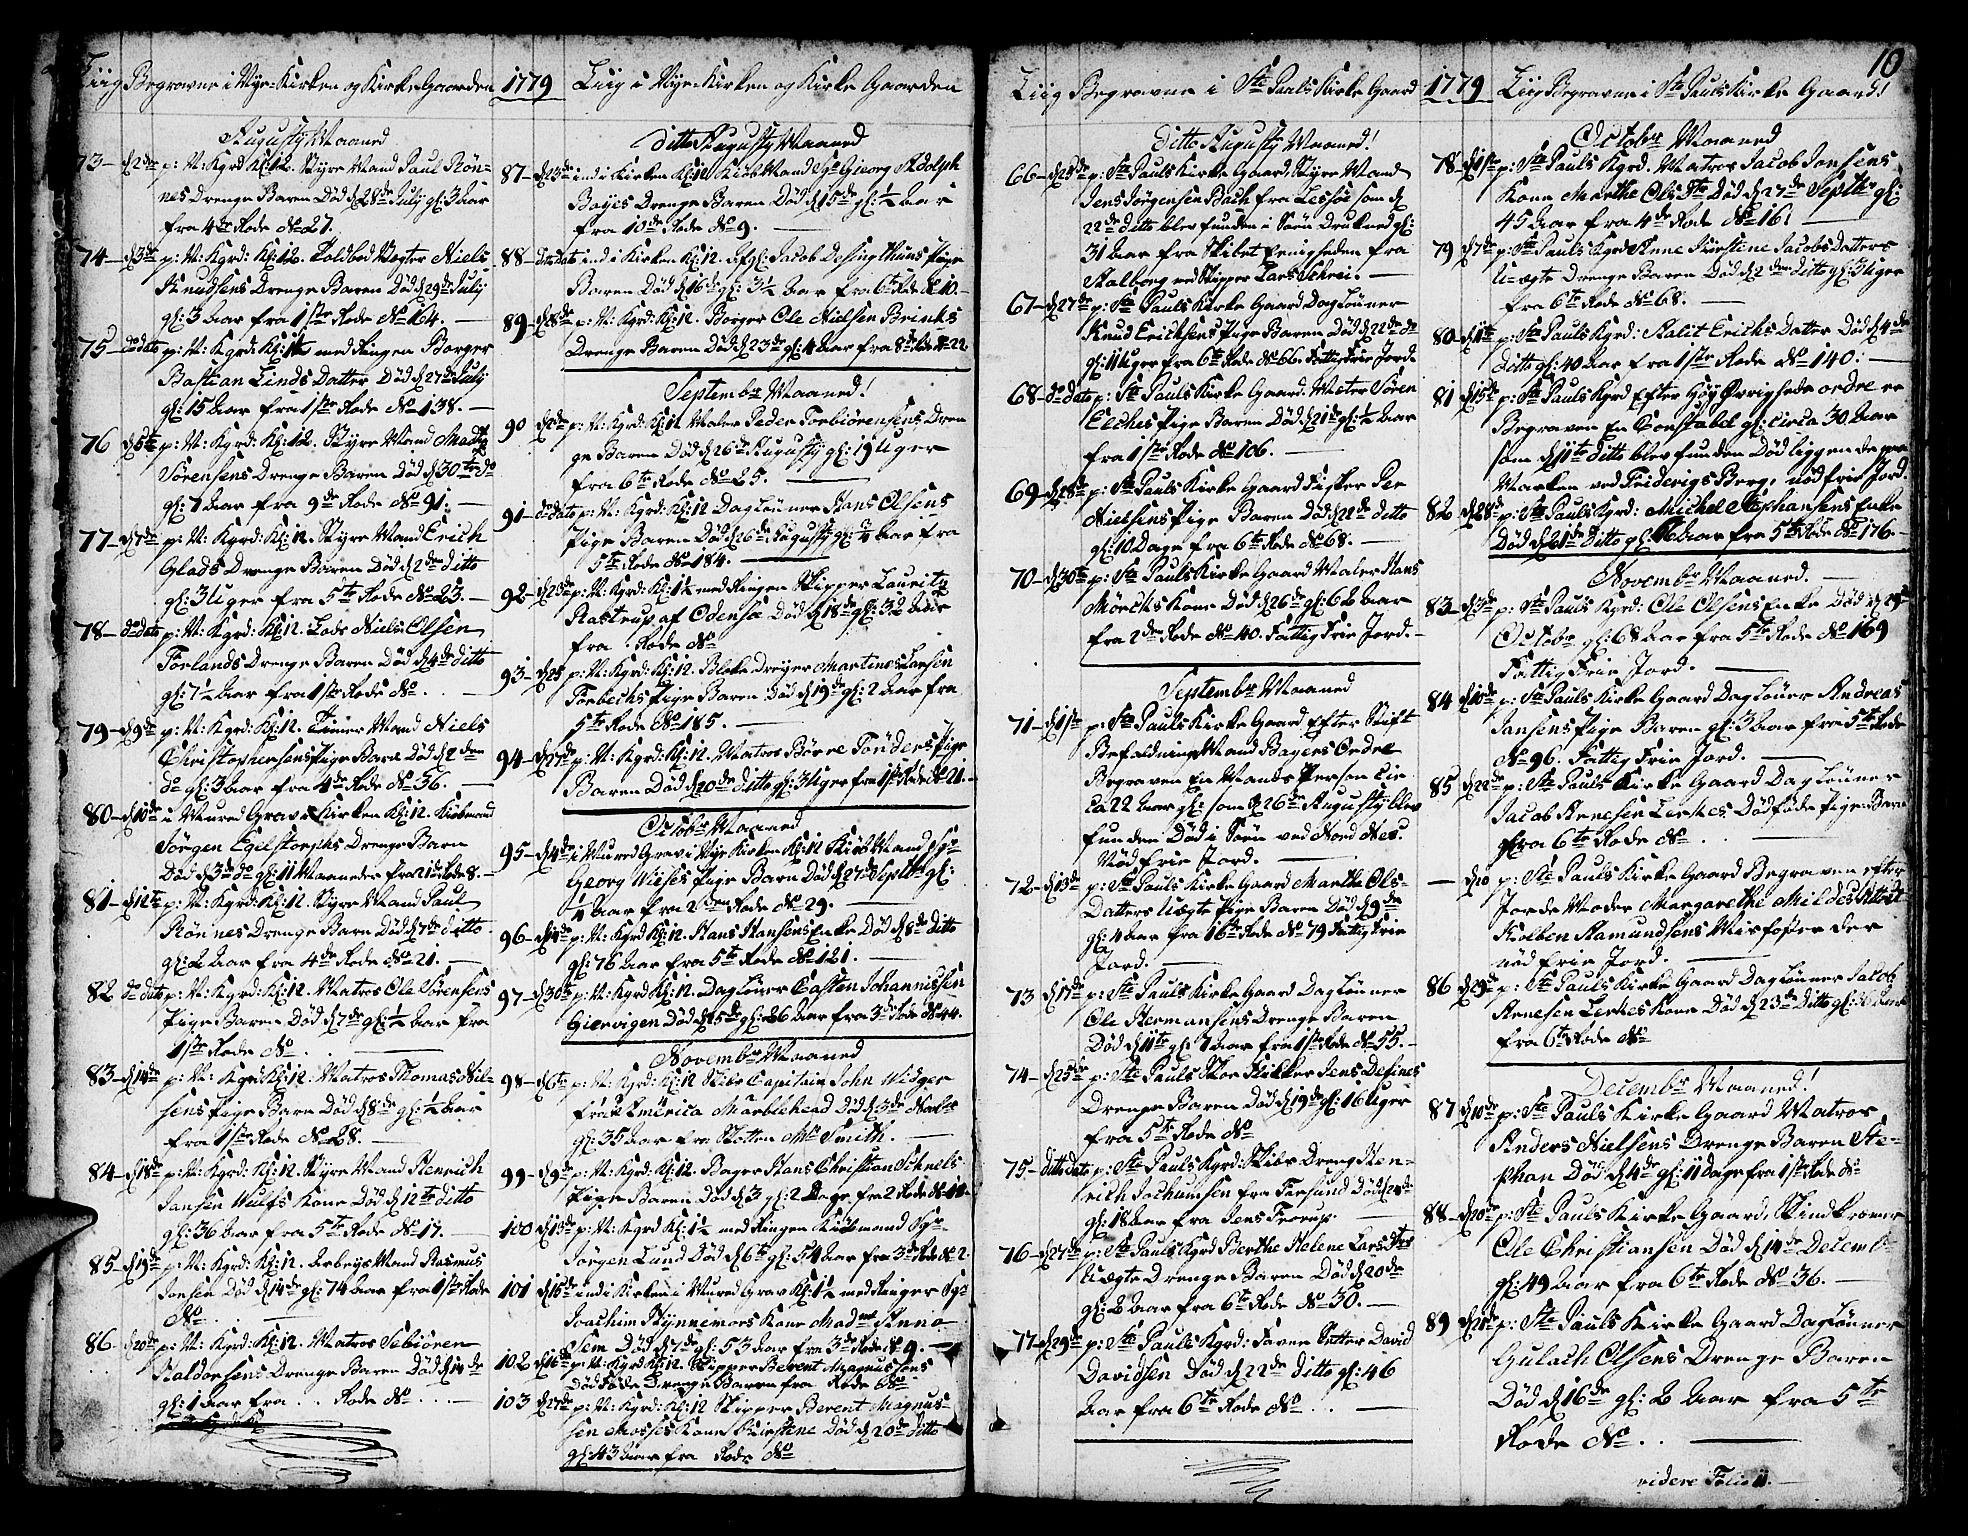 Liig Begravne i Nye-Kirken og Kirke Gaarden 1779
Augusty Maaned
73 – d 2de p: N: Kgrd Kl: 12. Styre Mand Paul Rön-
nes Drenge Baren Död d 28de July gl: 3 aar
fra 4de Rode No 27.
74 – d 3de p: N: Kgrd: Kl: 12. Toldbod Vogter Niels
Knudsens Drenge Baren Död d 29de July
gl: 3 aar fra 1ste Rode No 164.
75 – do dato p: N: Kgrd: Kl: 1½ med Ringen Borger
Bastian Linds Datter Död d 27de July
gl: 15 aar fra 1ste Rode No 138.
76 d 6te p: N: Kgrd: Kl: 12. Styre Mand Mads
Sörensens Drenge Baren Död d 30te do
gl: 7 aar fra 9de Rode No 91.
77 – d 7de p: N: Kgrd: Kl: 12. Styre Mand Erich
Glads Drenge Baren Död d 2de ditto
gl: 3 Uger fra 5te Rode No 23.
78 – do dato p: N: Kgrd: Kl: 12. Lods Niels Olsen
Forlands Drenge Baren Död d 4de ditto
gl: 7½ aar fra 1ste Rode No . .
79 – d 9de p: N: Kgrd: Kl: 12. Timer Mand Niels
Christophersens Pige Barn Död d 2den
do gl: 3 aar fra 4de Rode No 36.
80 – d 10de i Mured Grav i Kirken Kl: 12. Kiöbmand
Jörgen Egelstorphs Drenge Barn
Död d 3de do gl: 11 Maaneder fra 21de Rode 8.
81 – d 12te p: N: Kgrd: Kl: 12. Styre Mand Paul
Rönnes Drenge Barn Död d 7de ditto
gl: 2 aar fra 4de Rode No 21.
82 do dato p: N: Kgrd: Kl: 12. Matros Ole Sörensens
Pige Baren Död d 7de gl: ½ aar fra
1ste Rode No .
83 – d 14de p: N: Kgrd Kl: 12. Matros Thomas Nil-
sens Pige Barn Död d 8de gl: ½ aar
fra 1ste Rode No 28.
84 – d 18de p: N: Kgrd: Kl: 12. Styre Mand Henrich
Jansen Wulfs Kone Död d 12te ditto
gl: 36 aar fra 5te Rode No 17.
85 – d 19de p: N: Kgrd: Kl: 12. Arbeyds Mand Rasmus
Jonsen Död d 14de gl: 74 aar fra 1ste Rode
No . .
86 d 20de p: N: Kgrd: Kl: 12. Matros Sebiören
Haldorsens Drenge Baren Död d 14de
gl: 1 aar fra . . Rode No . . .
Liig i Nye-Kirken og Kirke Gaarden
ditto Augusty Maaned
87 – d 23de ind i Kirken Kl: 12 Kiöb Mand Sgr Georg Adolph
Boyes Drenge Baren Död d 15de gl: ½ aar
fra 10de Rode No 9.
88 – ditto dato ind i Kirken Kl: 12. Jacob Pige
Baren Död d 16de gl: 3½ aar fra 6te Rode No 10.
89 – d 28de p: N: Kgrd: Kl: 12. Borger Ole Nielsen Brinks
Drenge Baren Död d 23de gl: 4 aar fra 8de Rode No 22
Septembr Maaned!
90 d 2de p: N: Kgrd: Kl: 12 Maler Peder Torbiörensens Dren
ge Baren Död d 26de Augusty gl: 19 Uger
fra 6te Rode No 25.
91 – do dato p: N: Kgrd: Kl: 12 Daglönner Hans Olsens
Pige Baren Död d 26de Augusty gl: ¼ aar fra
5te Rode No 184.
92 – d 23de p: N: Kgrd: Kl: 1½ med Ringen Skipper Lauritz
Rastrup af Odense Död d 18de gl: 32 aar
fra . Rode No
93 – d 25 p: N: Kgrd: Kl: 12. Bloke Dreyer Martines Larsen
Torbechs Pige Baren Död d 19de gl: 2 aar fra
5te Rode No 185.
94 – d 27de p: N: Kgrd: Kl: 12. Matros Börre Tönders Pige
Baren Död d 20de ditto gl: 3 Uger fra 1ste Rode No 21.
Octobr Maaned
95 – d 4de i Mured Grav i Nye Kirken Kl: 12 Kiöb Mand Sgr
Georg Wieses Pige Barn Död d 27de Septbr gl:
¼ aar fra 2den Rode No 29.
96 – d 14de p: N: Kgrd Kl: 12. Hans Hansens Enke Död d 8de ditto
gl: 76 aar fra 5te Rode No 121.
97 – d 30te p: N: Kgrd Kl: 12. Daglöner Casten Johannissen
Giervigen Död d 25de gl: 26 aar fra 3de Rode No 44.
Novembr Maaned
98 – d 6te p: N: Kgrd: Kl: 12 Skibs Capitain John Widger
fra America Marblehead Död d 3de Novbr
gl: 35 aar fra Skotten Mr Smith.
99 – d 9de p: N: Kgrd: Kl: 12. Bager Hans Christian Schnels
Pige Baren Död d 3 gl: 2 Dage fra 2 Rode No 14.
100 d 13de p: N: Kgrd Kl: 1½ med Ringen Kiöbmand Sgr
Jörgen Lund Död d 6te gl: 54 aar fra 3de Rode No 2.
101 d 15de ind i Kirken i Mured Grav Kl: 1½ med Ringer Sgr
Joachim Stynnemors Kone Madme Anna
Sem Död d 7de gl: 53 aar fra 3de Rode No 9.
102 d 16de p: N: Kgrd Kl: 12. Skipper Berent Magnussens
Dödföde Drenge Baren fra Rode No
103 d 27de p: N: Kgrd: Kl: 12 Skipper Berent Magnus-
sen Mosses Kone Kirstene Död d 20de ditto
gl: 43 aar fra Rode No
10
Liig Begravne i Ste Pauls Kirke Gaard 1779
ditto Augusty Maaned!
66 – d 25de p: Ste Pauls Kirke Gaard Styre Mand
Jens Jörgensen Bach fra Lessöe som d
22de ditto blev funden i Söen Druknet gl:
31 aar fra Skibet Enigheden fra
Aalborg ved Skipper Lars Schrei.
67 – d 27de p: Ste Pauls Kirke Gaard Daglönner
Knud Erichsens Pige Baren Död d 22de do
gl: 11 Uger fra 6te Rode No 66. Fattig Frie Jord.
68 – do dato p: Ste Pauls Kirke Gaard. Meter Sören
Eeches Pige Baren Död d 21de gl: ½ aar
fra 1ste Rode No 106.
69 – d 28de p: Ste Pauls Kirke Gaard Fisker Per
Nielsens Pige Baren Död d 22de ditto
gl: 10 Dage fra 6te Rode No 68.
70 – d 30te p: Ste Pauls Kirke Gaard Maler Hans
Mörchs Kone Död d 26de gl: 62 aar
fra 2de Rode No 40. Fattig Frie Jord.
Septembr Maaned
71 – d 1ste p: Ste Pauls Kirke Gaard Efter Stift
Befalding Mand Bagers Ordre
Begraven En Mands Person Cir-
ca 22 aar gl: som d 26de Augusty blev
funden Död i Söen ved Nord Nes.
Nöd frie Jord.
72 – d 13de p: Ste Pauls Kirke Gaard Marthe Ols-
Datters Uægte Pige Baren Död d 9de
gl: 4 aar fra 16te Rode No 79 Fattig Frie
Jord.
73 d 17de p: Ste Pauls Kirke Gaard Daglönner
Ole Hermansens Drenge Baren
Död d 11te gl: 7 aar fra 1ste Rode No 55.
74 – d 25de p: Ste Pauls Skoe Flikker Jens Desines
Drenge Baren Död d 19de gl: 16 Uger
fra 5te Rode No
75 – ditto dato p: Ste Pauls Kgrd: Skibs Dreng Hen-
rich Jochumsen fra Farsund Död d 24de
gl: 18 aar fra Jens Frorup.
76 – d 27de p: Ste Pauls Kgrd Berthe Helene Lars Dtr
Uægte Drenge Baren Död d 20de
gl: 2 aar fra 6te Rode No 30.
77 – d 29de p: Ste Pauls Kgrd: Farve Sutter David
Davidsen Död d 22de ditto gl: 46
aar fra 6te Rode No . .
1779 Liig Begravne i Ste Pauls Kirke Gaard!
Octobr Maaned
78 – d 1ste p: Ste Pauls Kgrd. Matros Jacob Jonsens
Kone Marthe Ols Dtr Död d 27de Septbr gl:
45 aar fra 4de Rode No 161
79 d 7de p: Ste Pauls Kgrd Anne Kirstine Jacobs Datters
U-ægte Drenge Baren Död d 2den ditto gl: 3 Uger
fra 6te Rode No 68.
80 – d 11te p: Ste Pauls Kgrd: Malit Erichs Datter Död d 4de
ditto gl: 40 aar fra 1ste Rode No 140.
81 d 15de p: Ste Pauls Kgrd Efter Höy Övrigheds ordre er
Begraven En Constabel gl: circa 30 aar
som d 11te ditto blev funden Död liggende paa
Marken ved Friderigs Berg. nöd frie Jord.
82 d 28de p: Ste Pauls Kgrd: Michel Stephansens Enke
Död d 21de ditto gl: aar fra 5te Rode No 176.
Novembr Maaned.
83 – d 3de p: Ste Pauls Kgrd: Ole Olsens Enke Död d 29de
Octobr gl: 68 aar fra 5te Rode No 169
Fattig Frie Jord.
84 d 10de p: Ste Pauls Kirke Gaard Daglöner Andreas
Jansens Pige Baren gl: 3 aar fra 5te Rode
No 96. Fattig Frie Jord.
85 d 22de p: Ste Pauls Kirke Gaard Daglönner
Jacob Arnesen Lerches Dödföde Pige Barn
fra 6te Rode No . .
— d 20 p: Ste Pauls Kirke Gaard Begraven efter
Jorde Moder Margarethe Mildes Attest
Kolben Hamundsens Misfoster der
nöd frie Jord.
86 d 29de p: Ste Pauls Kirke Gaard Daglönner Jacob
Arnesen Lerches Kone Död d 23de ditto gl: 30 aar
fra 6te Rode No
Decembr Maaned!
87 d 10de p: Ste Pauls Kirke Gaard Matros
Anders Nielsens Drenge Baren Ste-
phan Död d 4de gl: 11 Dage fra 1ste Rode No
88 – d 20de p: Ste Pauls Kirke Gaard, Skindkremer
Ole Christiansen Död d 14de Decemb
gl: 49 aar fra 6te Rode No 36.
89 d 21de p: Ste Pauls Kirke Gaard Daglönner
Gulach Olsens Drenge Baren
Död d 16de gl: 2 aar fra 5te
Rode No . .
videre Folio 11.